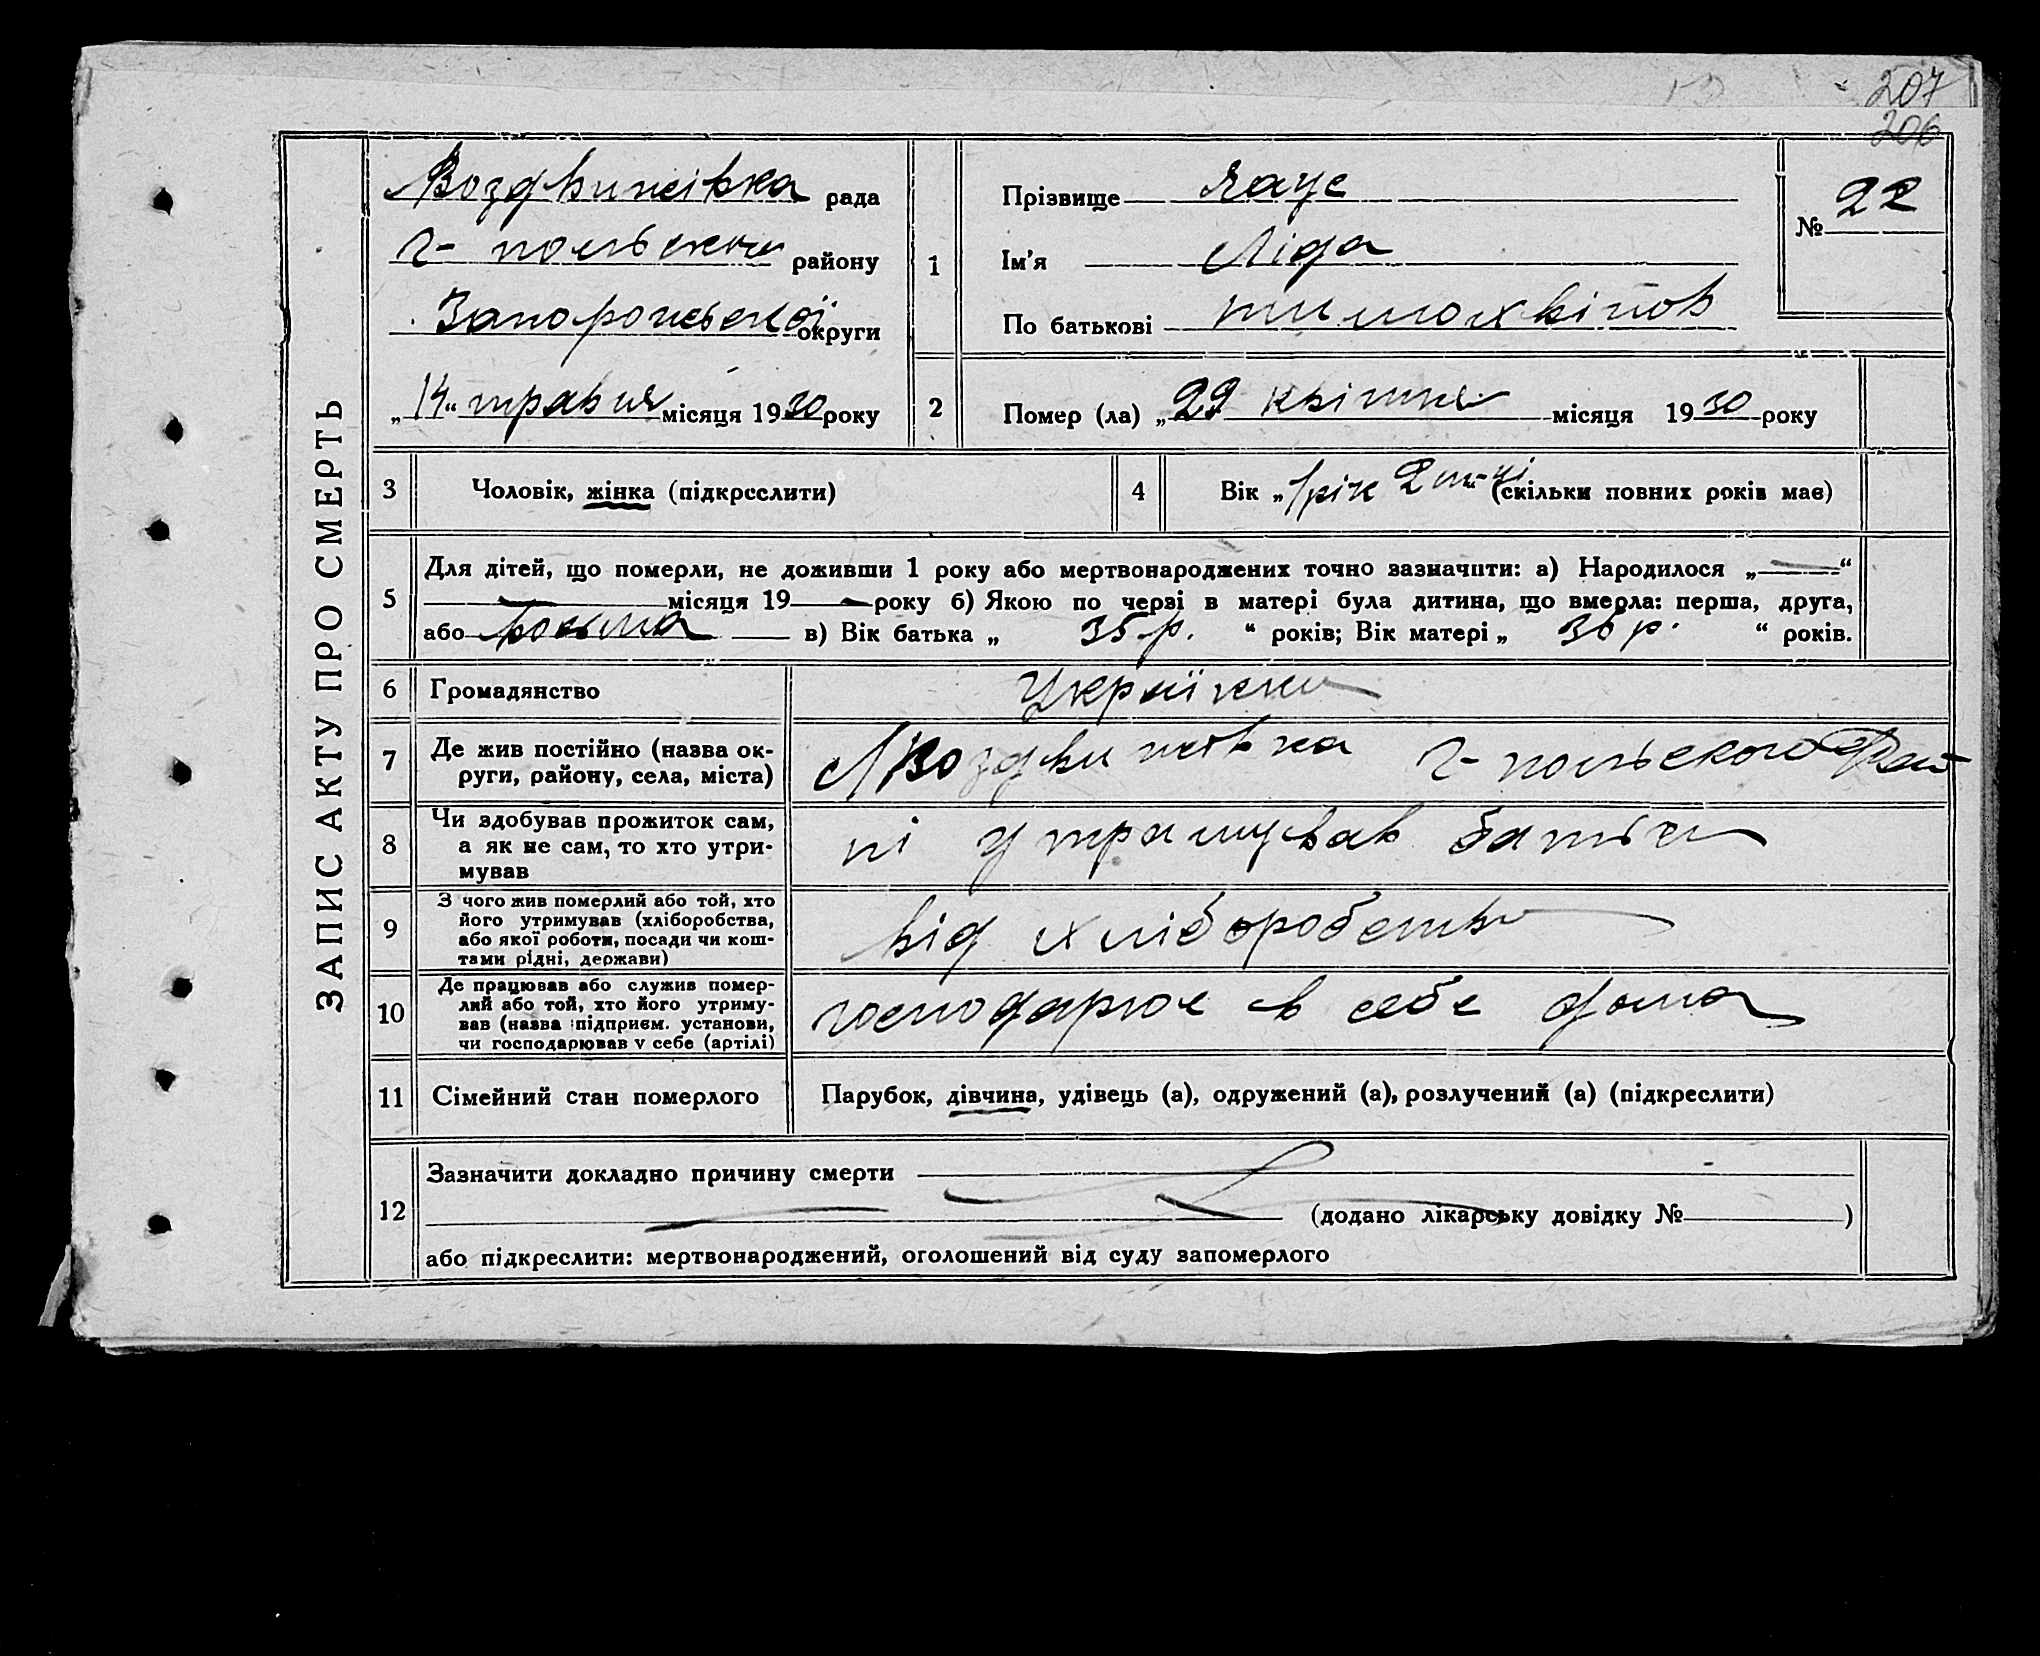 207
206
ЗАПИС АКТУ ПРО СМЕРТЬ
Воздвижівка рада
Г-польського району
Запорожської округи
„14“ травня місяця 1930 року
1
Прізвище
Імʼя Ліда
По батькові
№ 22
2
Помер (ла) „29 квітня місяця 1930 року
3
Чоловік, жінка (підкреслити)
4
Вік „1 рік 2 (скільки повних років має)
5
Для дітей, що померли, не доживши 1 року або мертвонароджених точно зазначити: а) Народилося „ — “
місяця 19 — року б) Якою по черзі в матері була дитина, що вмерла: перша, друга,
або восьма в) Вік батька „ 35 р. “ років; Вік матері „ 36 р. “ років.
6
Громадянство
7
Де жив постійно (назва ок-
руги, району, села, міста)
Воздвижівка Г-польського
8
Чи здобував прожиток сам,
а як не сам, то хто утри-
мував
ні утримував батьки
9
З чого жив померлий або той, хто
його утримував (хліборобства,
або якої роботи, посади чи кош-
тами рідні, держави)
від хліборобства
10
Де працював або служив помер-
лий або той, хто його утриму-
вав (назва підприєм. установи,
чи господарював у себе (артілі)
господарює в себе дома
11
Сімейний стан померлого
Парубок, дівчина, удівець (а), одружений (а), розлучений (а) (підкреслити)
12
Зазначити докладно причину смерти
(додано лікарську довідку № )
або підкреслити: мертвонароджений, оголошений від суду запомерлого